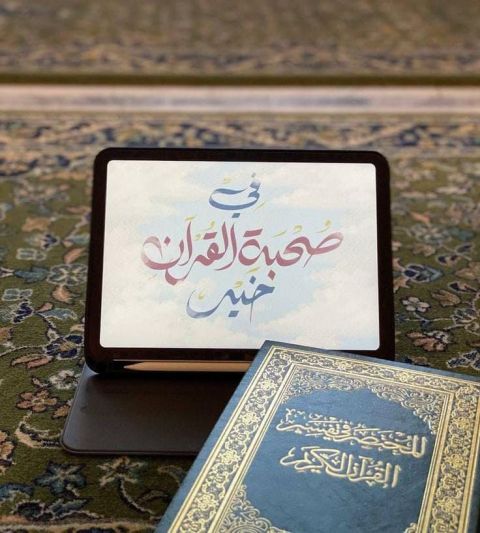 في
صحبة القرآن
خير
المختصر في تفسير
القرآن الكريم